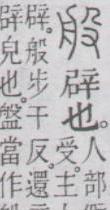 般辟也。
人部
受。主
辟。般步干反。還
辟兒也。盤當作